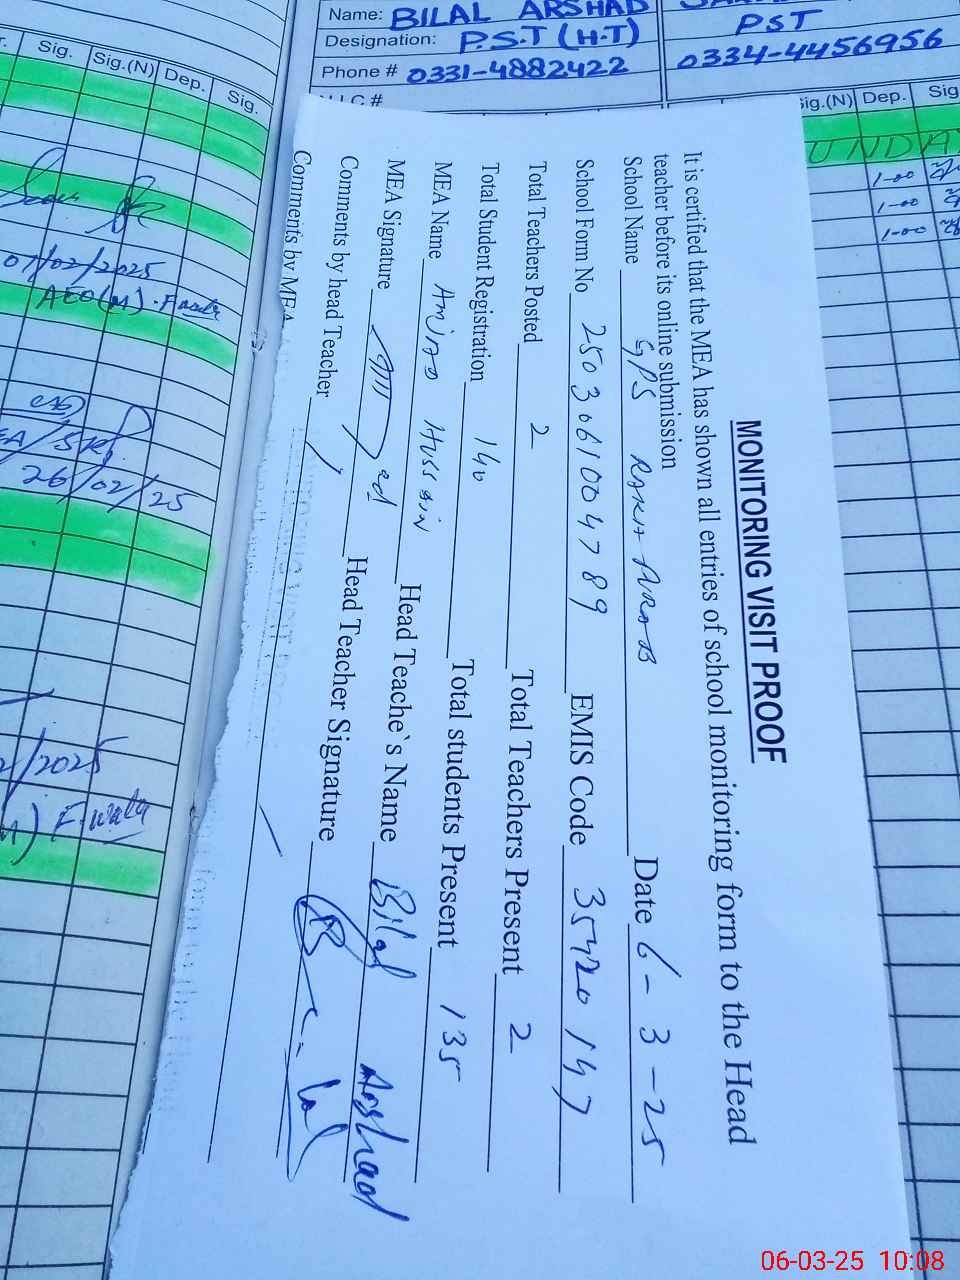 Name: BILAL ARSHAD
Designation: P.S.T (H.T) PST
Phone # 0331-4882422 0334-4456956
Sig. Sig.(N) Dep. Sig.
Sig.(N) Dep. Sig
UNDA
1-00
1-00
1-00
01/02/2025
AEO(M)
26/02/25
/2025
MONITORING VISIT PROOF
It is certified that the MEA has shown all entries of school monitoring form to the Head
teacher before its online submission
School Name GPS RAKH ARAB Date 6-3-25
School Form No 2503061004789 EMIS Code 35420147
Total Teachers Posted 2 Total Teachers Present 2
Total Student Registration 140 Total students Present 135
MEA Name Amjad Hussain Head Teache`s Name Bilal Arshad
MEA Signature Head Teacher Signature
Comments by head Teacher
Comments by MEA
06-03-25 10:08